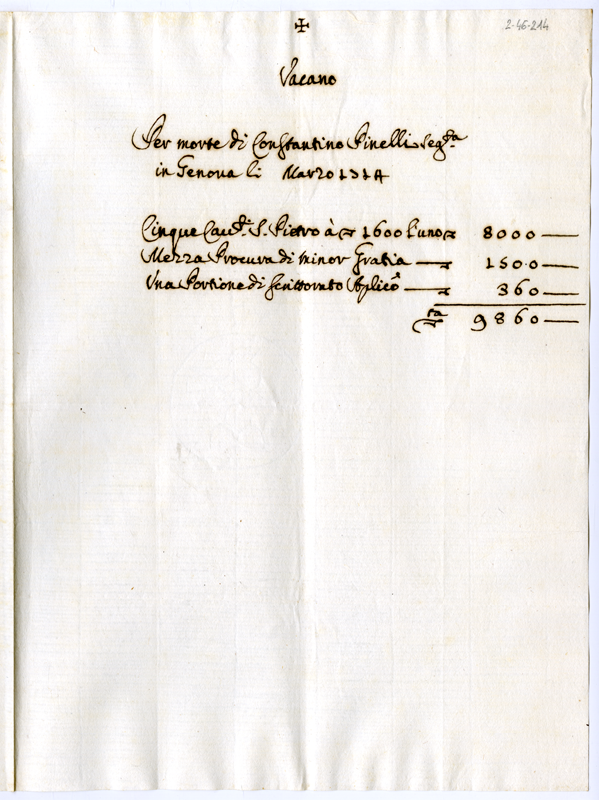 ✠
2-46-214
Vacano
Per morte di Constantino Pinelli seg.ta
in Genova li Marzo
Cinque Cau.di S. Pietro à 1600 l'uno 8000
Mezza Procura di minor Gratia 1500
Una Portione di scrittorato Aplicô 360
9860